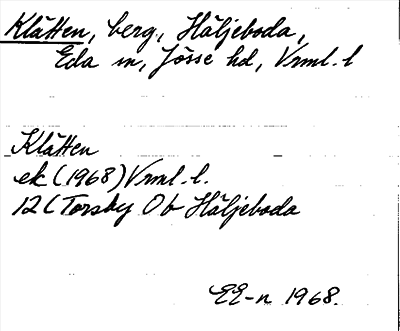 Klätten, berg, Häljeboda,
Eda sn, Jösse hd, Vrml. l
Klätten
ek (1968) Vrml. l.
12C Torsby 0b Häljeboda
EE-n 1968.